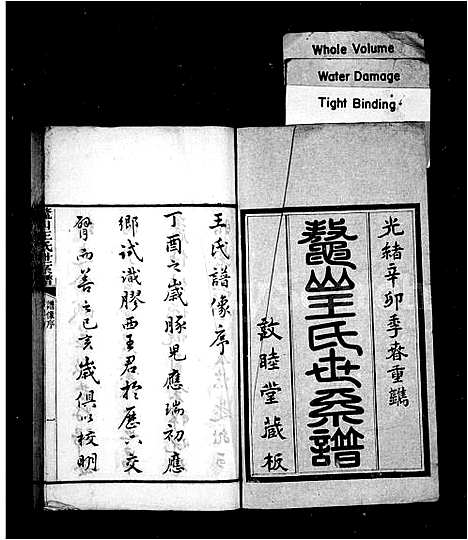 Whole Volume
Water Damage
Tight Binding
光緒辛卯季春重鐫
鼇山王氏世系譜
敦睦堂藏板
王氏譜像序
丁酉之歲豚兒應瑞初應
鄉試識膠西王君於歷下交
臂而善之已亥歲俱以校明
譜像序
一